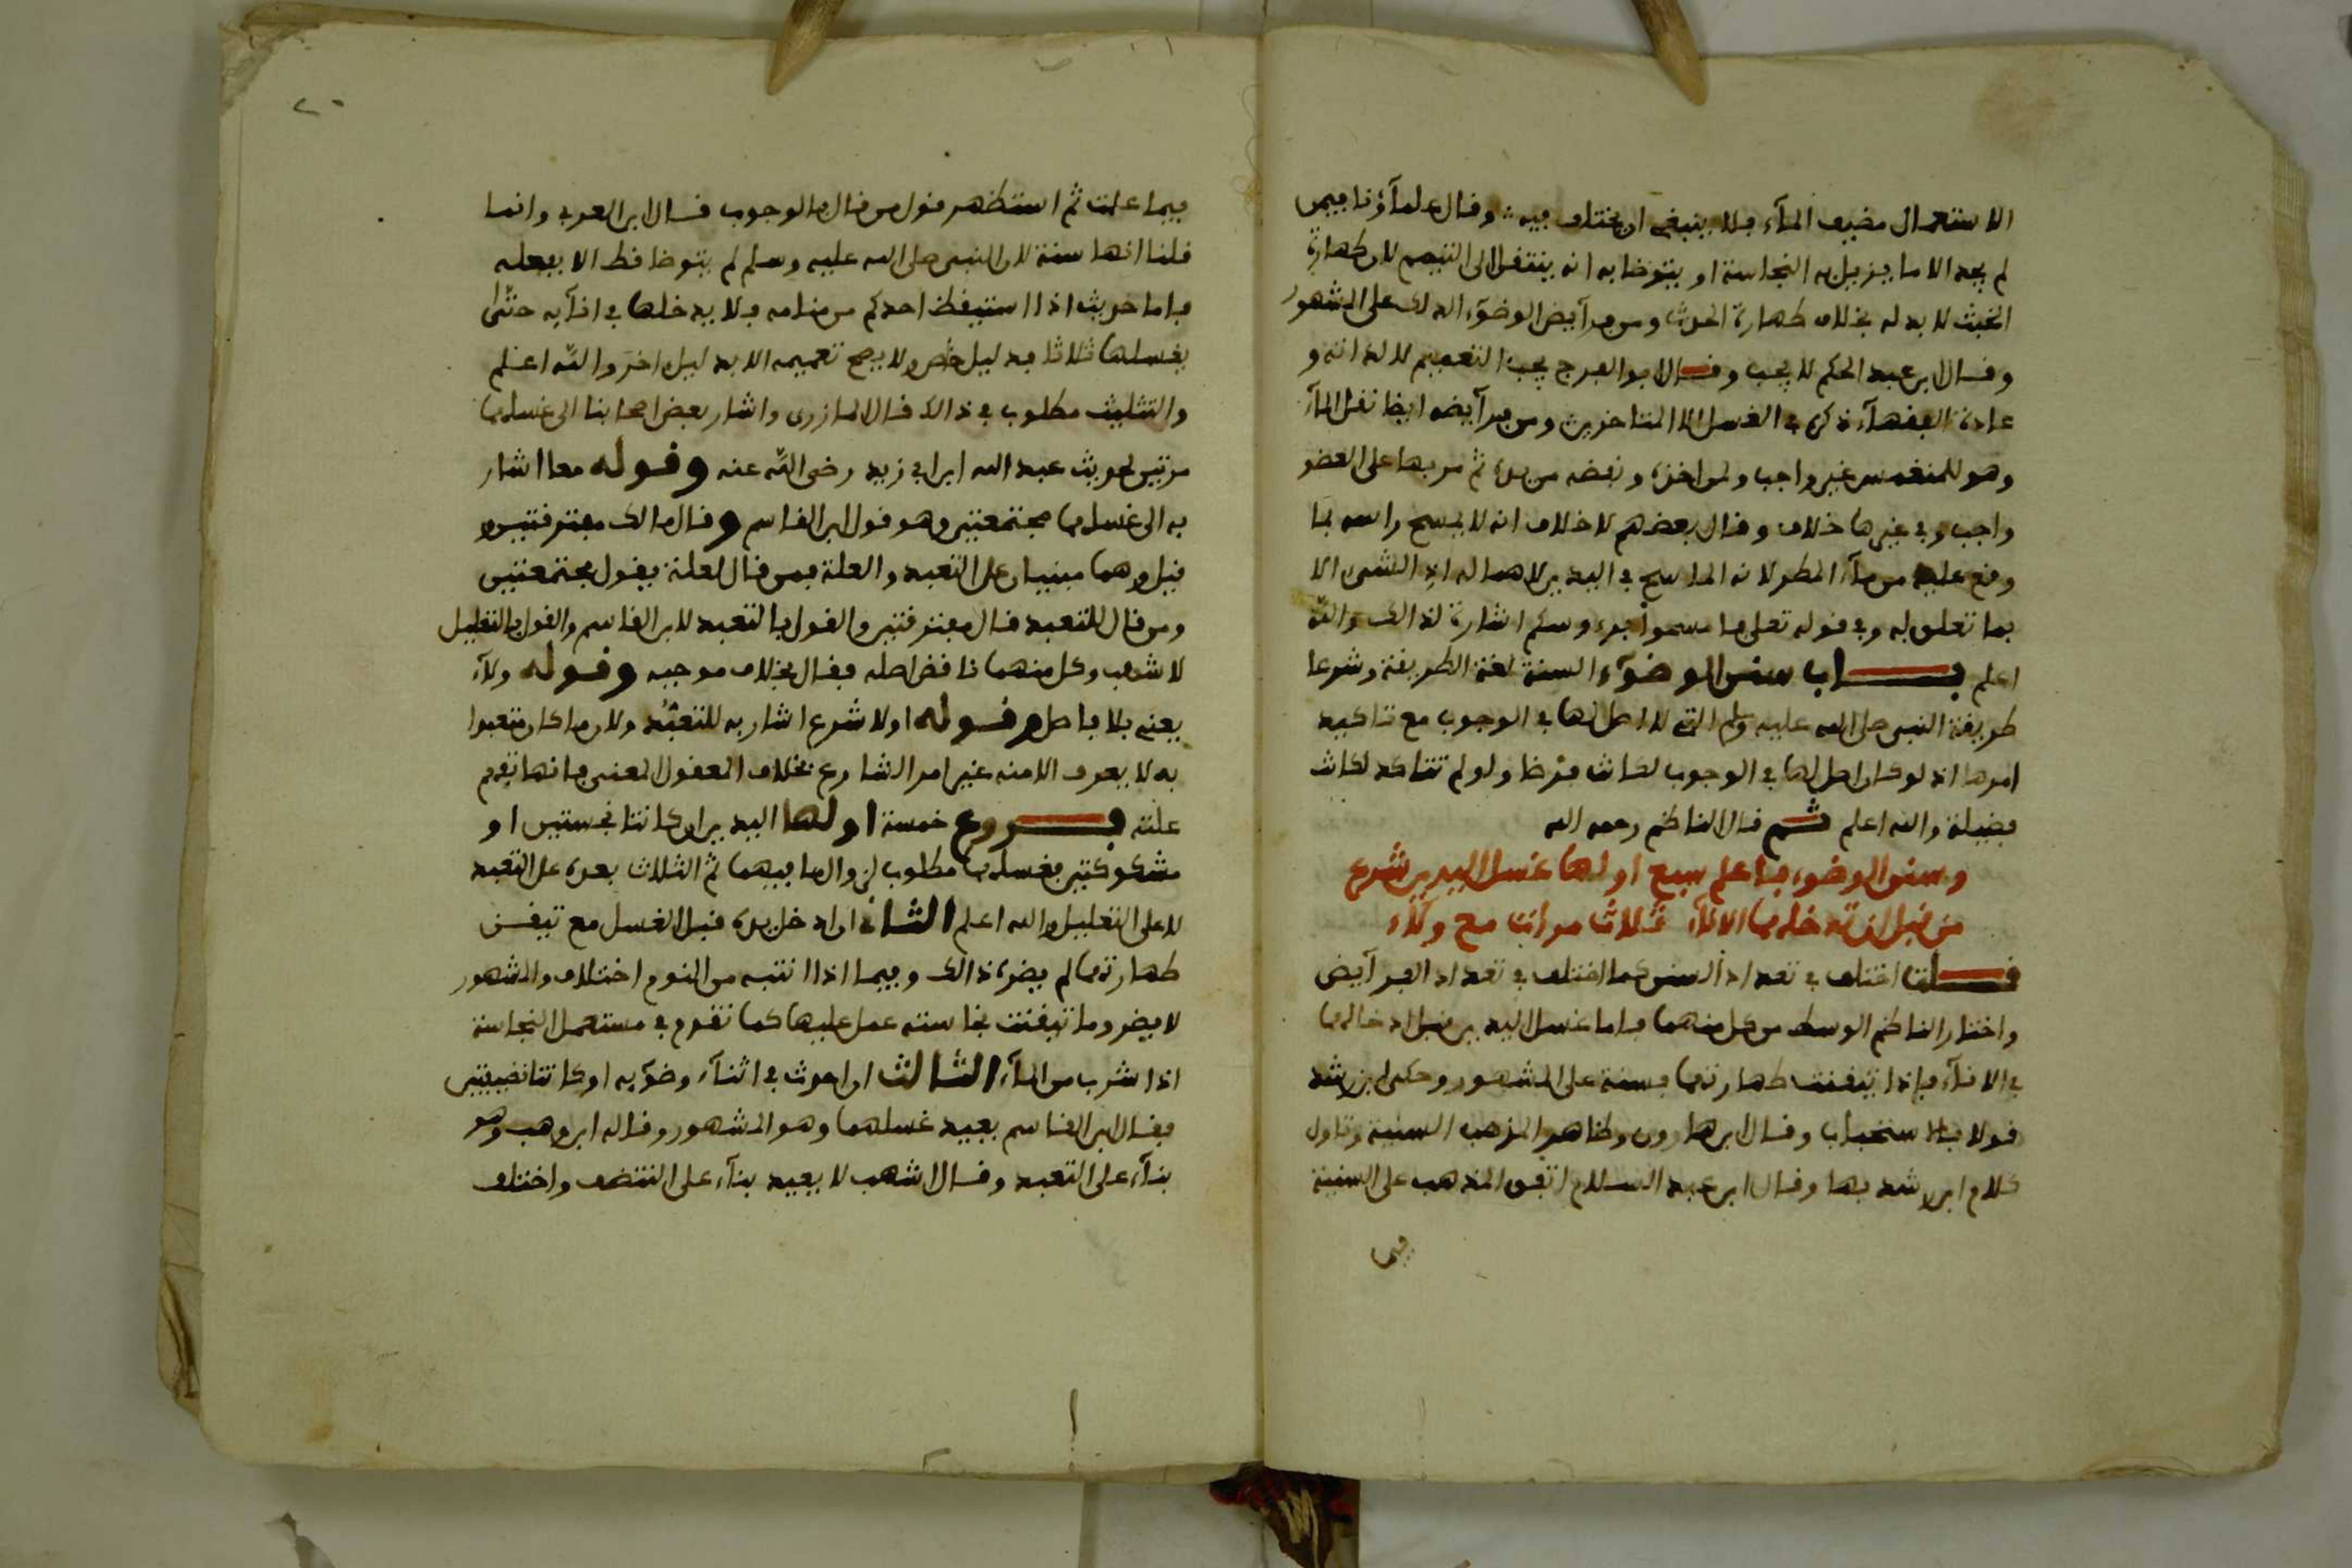 الاستعمال مضيف المآء فلا ينبغي ان يختلف فيه وقال علمآؤنا فيمن
لم يجد الا ما يزيل به النجاسة او يتوضا به انه ينتقل الى التيمم لان طهارة
الخبث لا بدله بخلاف طهارة الحدث ومن فرآيض الوضوء الدلك على المشهور
وقال ابن عبد الحكم لا يجب وقال ابو الفرج يجب التعميم لا لذاته و
عادة الفقهآء ذكره في الغسل الا المتاخرين ومن فرآيضه ايضا نقل المآء
وهو للمنغمس غير واجب ولمن اخذه ونفضه من يده ثم مر بها على العضو
واجب وفي غيرها خلاف وقال بعضهم لا خلاف انه لا يمسح راسه بما
وقع عليه من مآء المطر لانه الماسح في اليدين لاهماله اذ الشىء الا
بما تعلق به وفي قوله تعلى فامسحوا برءوسكم اشارة لذالك والله
اعلم بــاب سنن الوضوء السنة لغة الطريقة وشرعا
طريقة النبى صلى الله عليه وسلم التى لا اصل لها في الوجوب مع تاكيد
امرها اذ لو كان اصل لها في الوجوب لكانت فرضا ولو لم تتاكد لكانت
فضيلة والله اعلم ثم قال الناظم رحمه الله
وسنن الوضوء فاعلم سبع اولها غسل اليدين شرع
من قبل ان تدخلهما الانآء ثلاث مرات مع ولآء
قــلت اختلف في تعداد السنن كما اختلف في تعداد الفرآيض
واختار الناظم الوسط من كل منهما فاما غسل اليدين قبل ادخالهما
في الانآء فاذا تيقنت طهارتهما فسنة على المشهور وحكى ابن رشد
قولا بالاستحباب وقال ابن هارون وظاهر المذهب السنية وتاول
كلام ابن رشد بها وقال ابن عبد السلام اتفق المذهب على السنية
فيما
٢٠
فيما علمت ثم استظهر قول من قال بالوجوب قال ابن العربي وانما
قلنا انها سنة لان النبى صلى الله عليه وسلم لم يتوضا قط الا بفعله
فاما حديث اذا استيقظ احدكم من منامه فلا يدخلها في انآيه حتى
يغسلها ثلاثا فدليل خاص ولا يصح تعميمه الا بدليل اخر والله اعلم
والتثليث مطلوب في ذالك قال المازرى واشار بعض اصحابنا الى غسلهما
مرتين لحديث عبد الله ابن ابي زيد رضى الله عنه وقوله معا اشار
به الى غسلهما مجتمعتين وهو قول ابن القاسم وقال مالك مفترقتين و
قيل وهما مبنيان على التعبد والعلة فمن قال لعلة يقول مجتمعتين
ومن قال للتعبد قال مفترقتين والقول بالتعبد لابن القاسم والقول بالتعليل
لاشهب وكل منهما ناقض اصله فقال بخلاف موجبه وقوله ولآء
يعنى بلا فاصل وقوله اولا شرع اشار به للتعبد ولان ما كان متعبدا
به لا يعرف الا منه غير امر الشارع بخلاف المعقول المعنى فانها تفهم
علته فــروع خمسة اولها اليدين ان كانتا نجستين او
مشكوكتين فغسلهما مطلوب لزوال ما فيهما ثم الثلاث بعده على التعبد
لا على التعليل والله اعلم الثاني ان ادخل يده قبل الغسل مع تيقن
طهارتهما لم يضره ذالك وفيما اذا انتبه من النوم اختلاف والمشهور
لا يضر وما تيقنت نجاسته عمل عليها كما تقدم في مستعمل النجاسة
اذا شرب من المآء الثالث ان احدث في اثنآء وضوءيه او كانتا نضيفتين
فقال ابن القاسم يعيد غسلهما وهو المشهور وقاله ابن وهب وهو
بنآء على التعبد وقال اشهب لا يعيد بنآء على التنضف واختلف